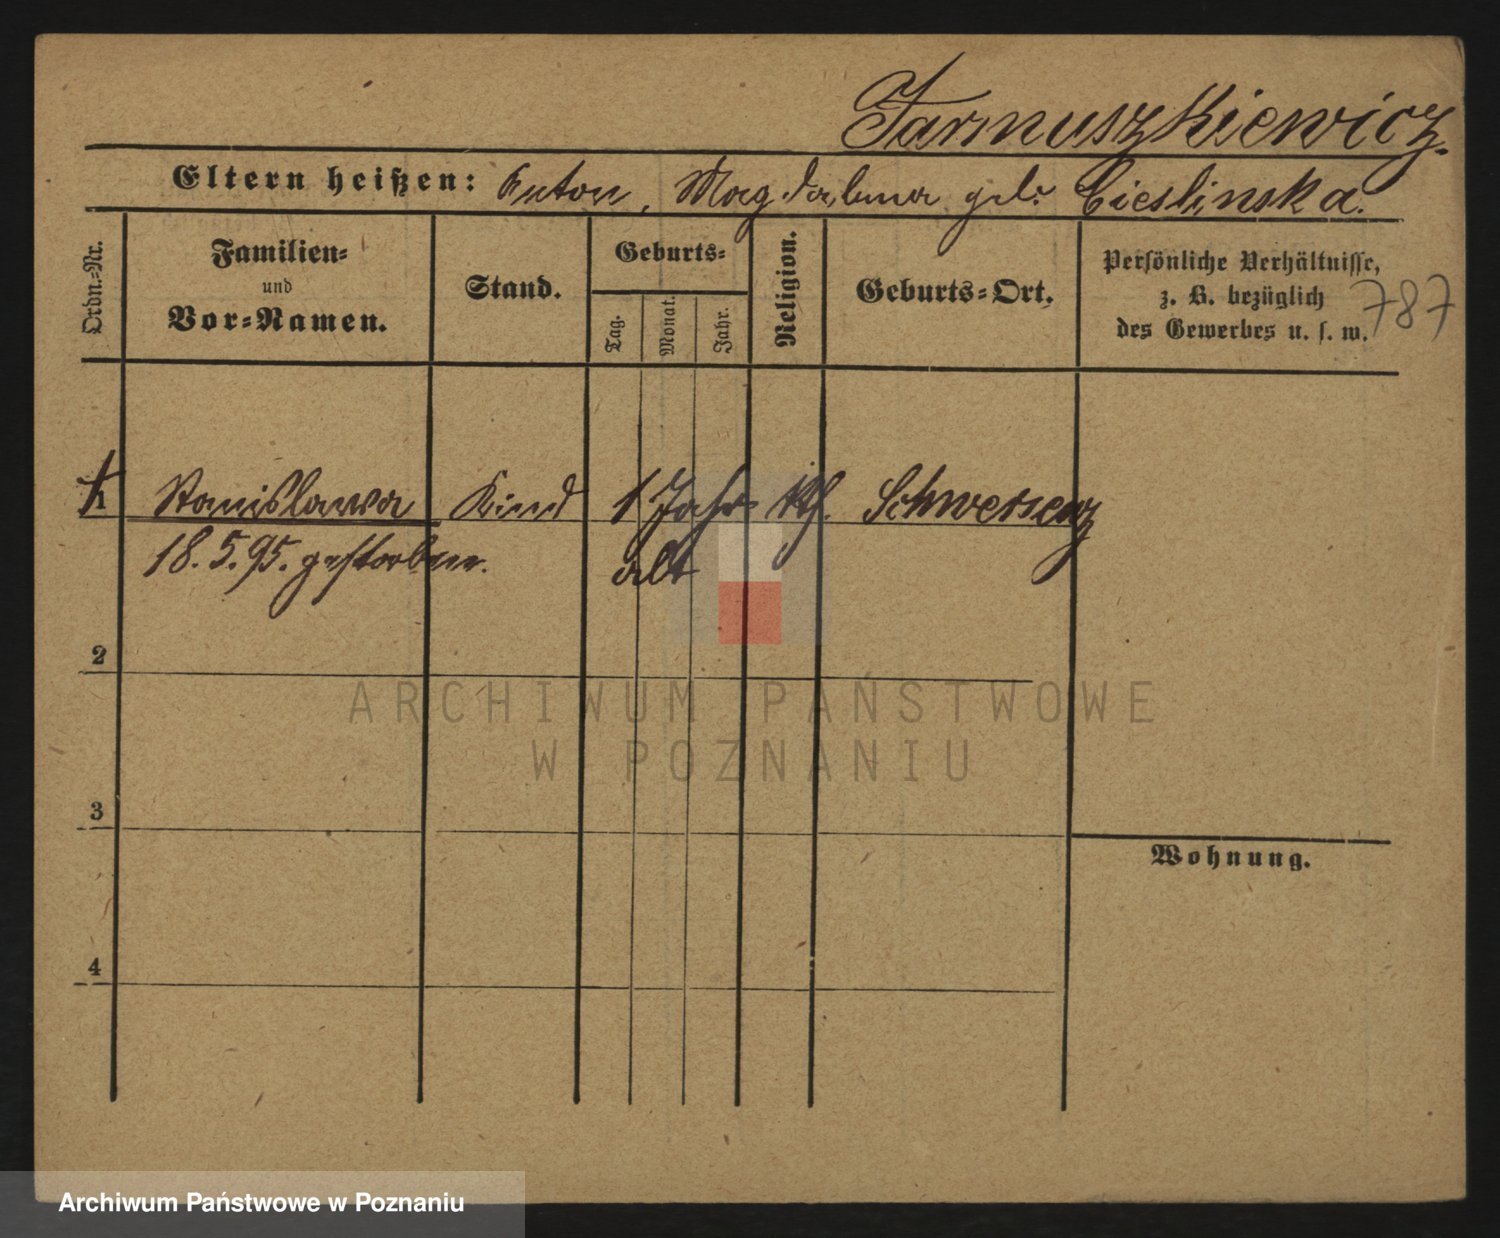 Jarmuszkiewicz.
Eltern heißen: Anton, Magdalena geb. Cieslinska.
Ordn.=Nr.
Familien=
und
Vor=Namen.
Stand.
Geburts=
Tag.
Monat.
Jahr.
Religion.
Geburts=Ort.
Persönliche Verhältnisse,
z. B. bezüglich
des Gewerbes u. s. w.
787
1 Stanislawa Kind 1 Jahr kth. Schwersenz
18.5.95. gestorben. alt
2
ARCHIWUM PAŃSTWOWE
W POZNANIU
3
Wohnung.
4
Archiwum Państwowe w Poznaniu